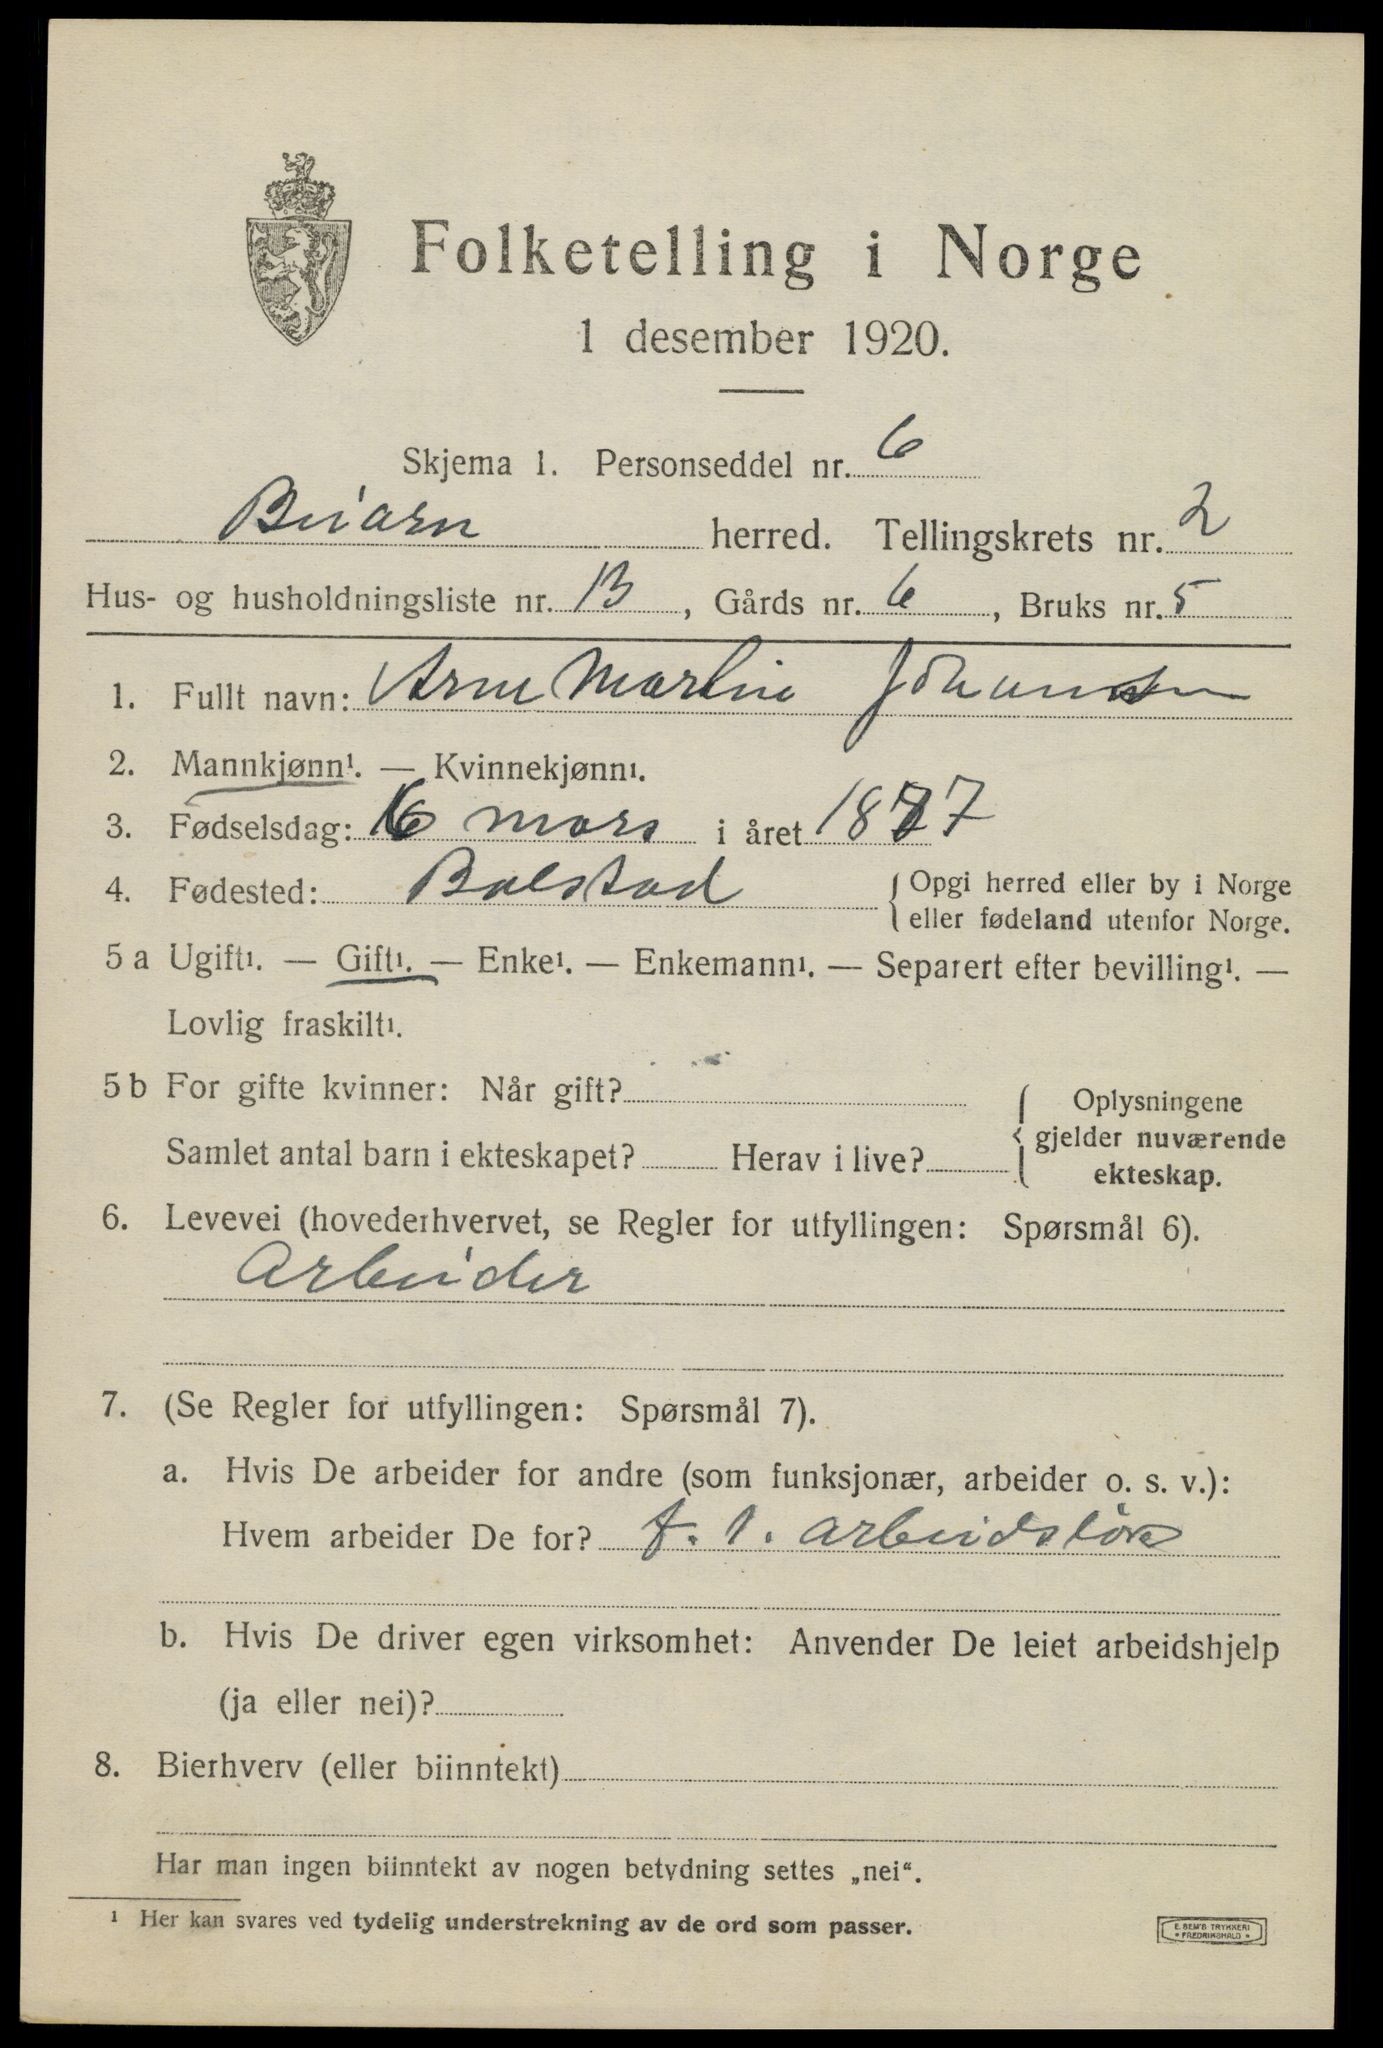 Folketelling i Norge
1 desember 1920.
Skjema 1. Personseddel nr. 6
Beiarn herred. Tellingskrets nr. 2
Hus- og husholdningsliste nr. 13, Gårds nr. 6, Bruks nr. 5
1. Fullt navn: Arne Martin Johansen
2. Mannkjønn¹. — Kvinnekjønn¹.
3. Fødselsdag: 6 mars i året 1877
4. Fødested: Balstad {Opgi herred eller by i Norge
eller fødeland utenfor Norge.
5 a Ugift¹. — Gift¹. — Enke¹. — Enkemann¹. — Separert efter bevilling¹. —
Lovlig fraskilt¹.
5 b For gifte kvinner: Når gift?
Samlet antal barn i ekteskapet? Herav i live?
{Oplysningene
gjelder nuværende
ekteskap.
6. Levevei (hovederhvervet, se Regler for utfyllingen: Spørsmål 6).
Arbeider
7. (Se Regler for utfyllingen: Spørsmål 7).
a. Hvis De arbeider for andre (som funksjonær, arbeider o. s. v.):
Hvem arbeider De for? f. t. arbeidsløs
b. Hvis De driver egen virksomhet: Anvender De leiet arbeidshjelp
(ja eller nei)?
8. Bierhverv (eller biinntekt)
Har man ingen biinntekt av nogen betydning settes „nei“.
¹ Her kan svares ved tydelig understrekning av de ord som passer.
E. SEM'S TRYKKERI
* FREDRIKSHALD *